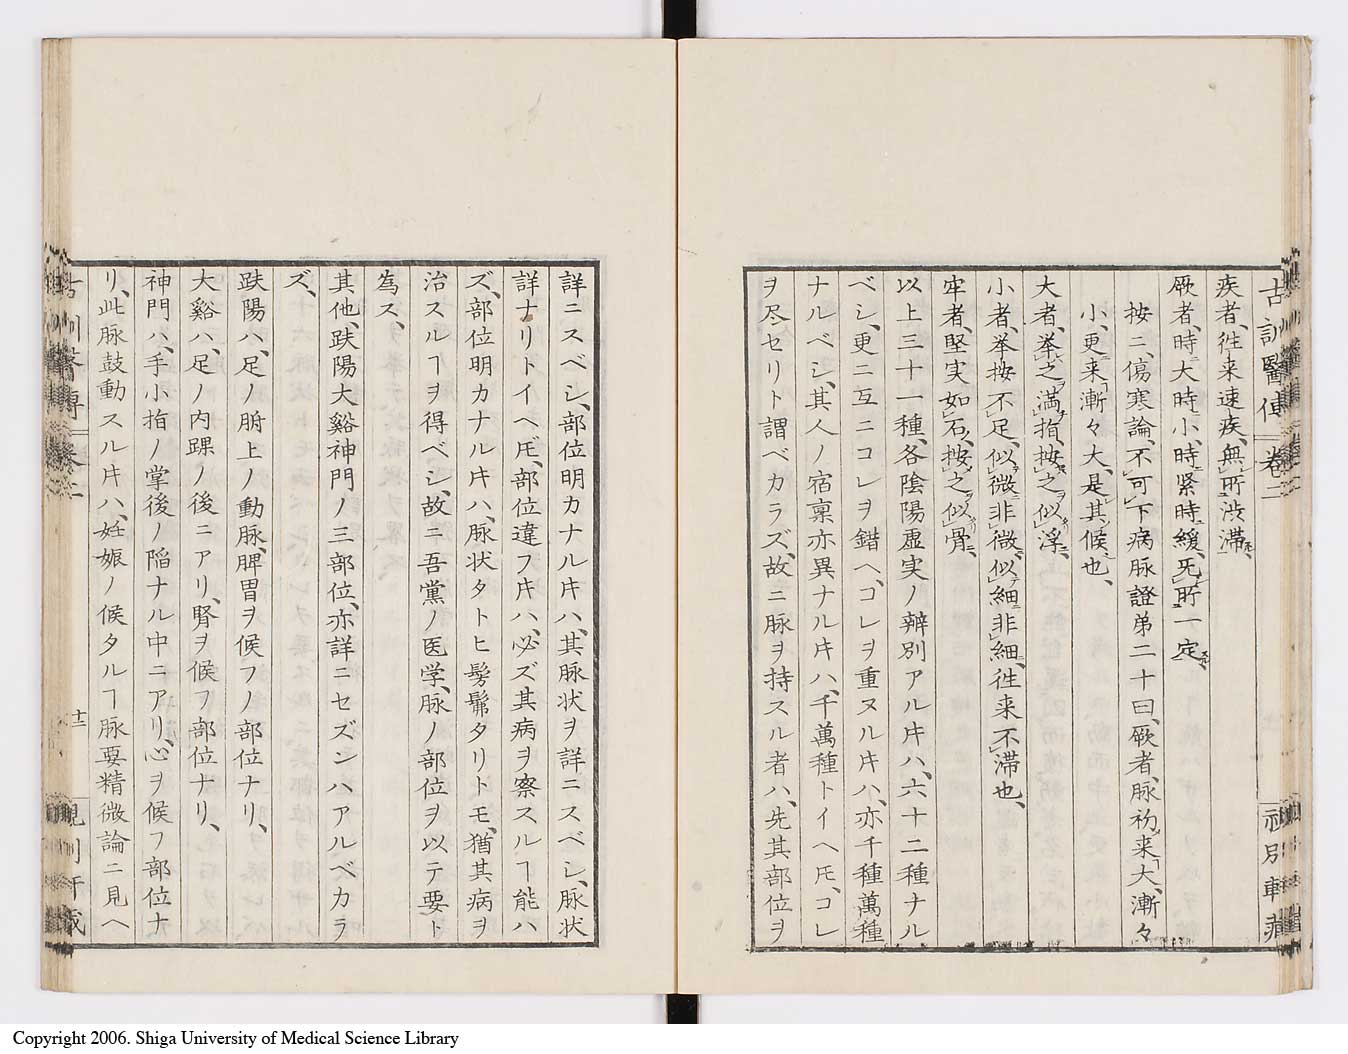 古訓醫傳 卷二
疾者、徃来速疾、無所渋滞、
厥者、時大時小、時緊時緩、旡所一定
按ニ、傷寒論、不可下病脉證弟二十曰、厥者、脉初来大、漸々
小、更来漸々大、是其候也、
大者、挙之満指、按之似浮、
小者、挙按不足、似微非微、似細非細、徃来不滞也、
牢者、堅実如石、按之似骨、
以上三十一種、各陰陽虚実ノ辨別アル㕁ハ、六十二種ナル
ベシ、更ニ互ニコレヲ錯ヘ、コレヲ重ヌル㕁ハ、亦千種萬種
ナルベシ、其人ノ宿禀亦異ナル㕁ハ、千萬種トイヘ𪜈、コレ
ヲ尽セリト謂ベカラズ、故ニ脉ヲ持スル者ハ、先其部位ヲ
詳ニスベシ、部位明カナル𪜈ハ、其脉状ヲ詳ニスベシ、脉状
詳ナリトイヘ𪜈、部位違フ𪜈ハ、必ズ其病ヲ察スルヿ能ハ
ズ、部位明カナル𪜈ハ、脉状タトヒ髣髴タリトモ、猶其病ヲ
治スルヿヲ得ベシ、故ニ吾黨ノ医学、脉ノ部位ヲ以テ要ト
為ス、
其他、趺陽大谿神門ノ三部位、亦詳ニセズンハアルベカラ
ズ、
趺陽ハ、足ノ胕上ノ動脉、脾胃ヲ候フノ部位ナリ、
大谿ハ、足ノ内踝ノ後ニアリ、腎ヲ候フ部位ナリ、
神門ハ、手小指ノ掌後ノ陥ナル中ニアリ、心ヲ候フ部位ナ
リ、此脉鼓動スル𪜈ハ、妊娠ノ候タルヿ脉要精微論ニ見ヘ
十二